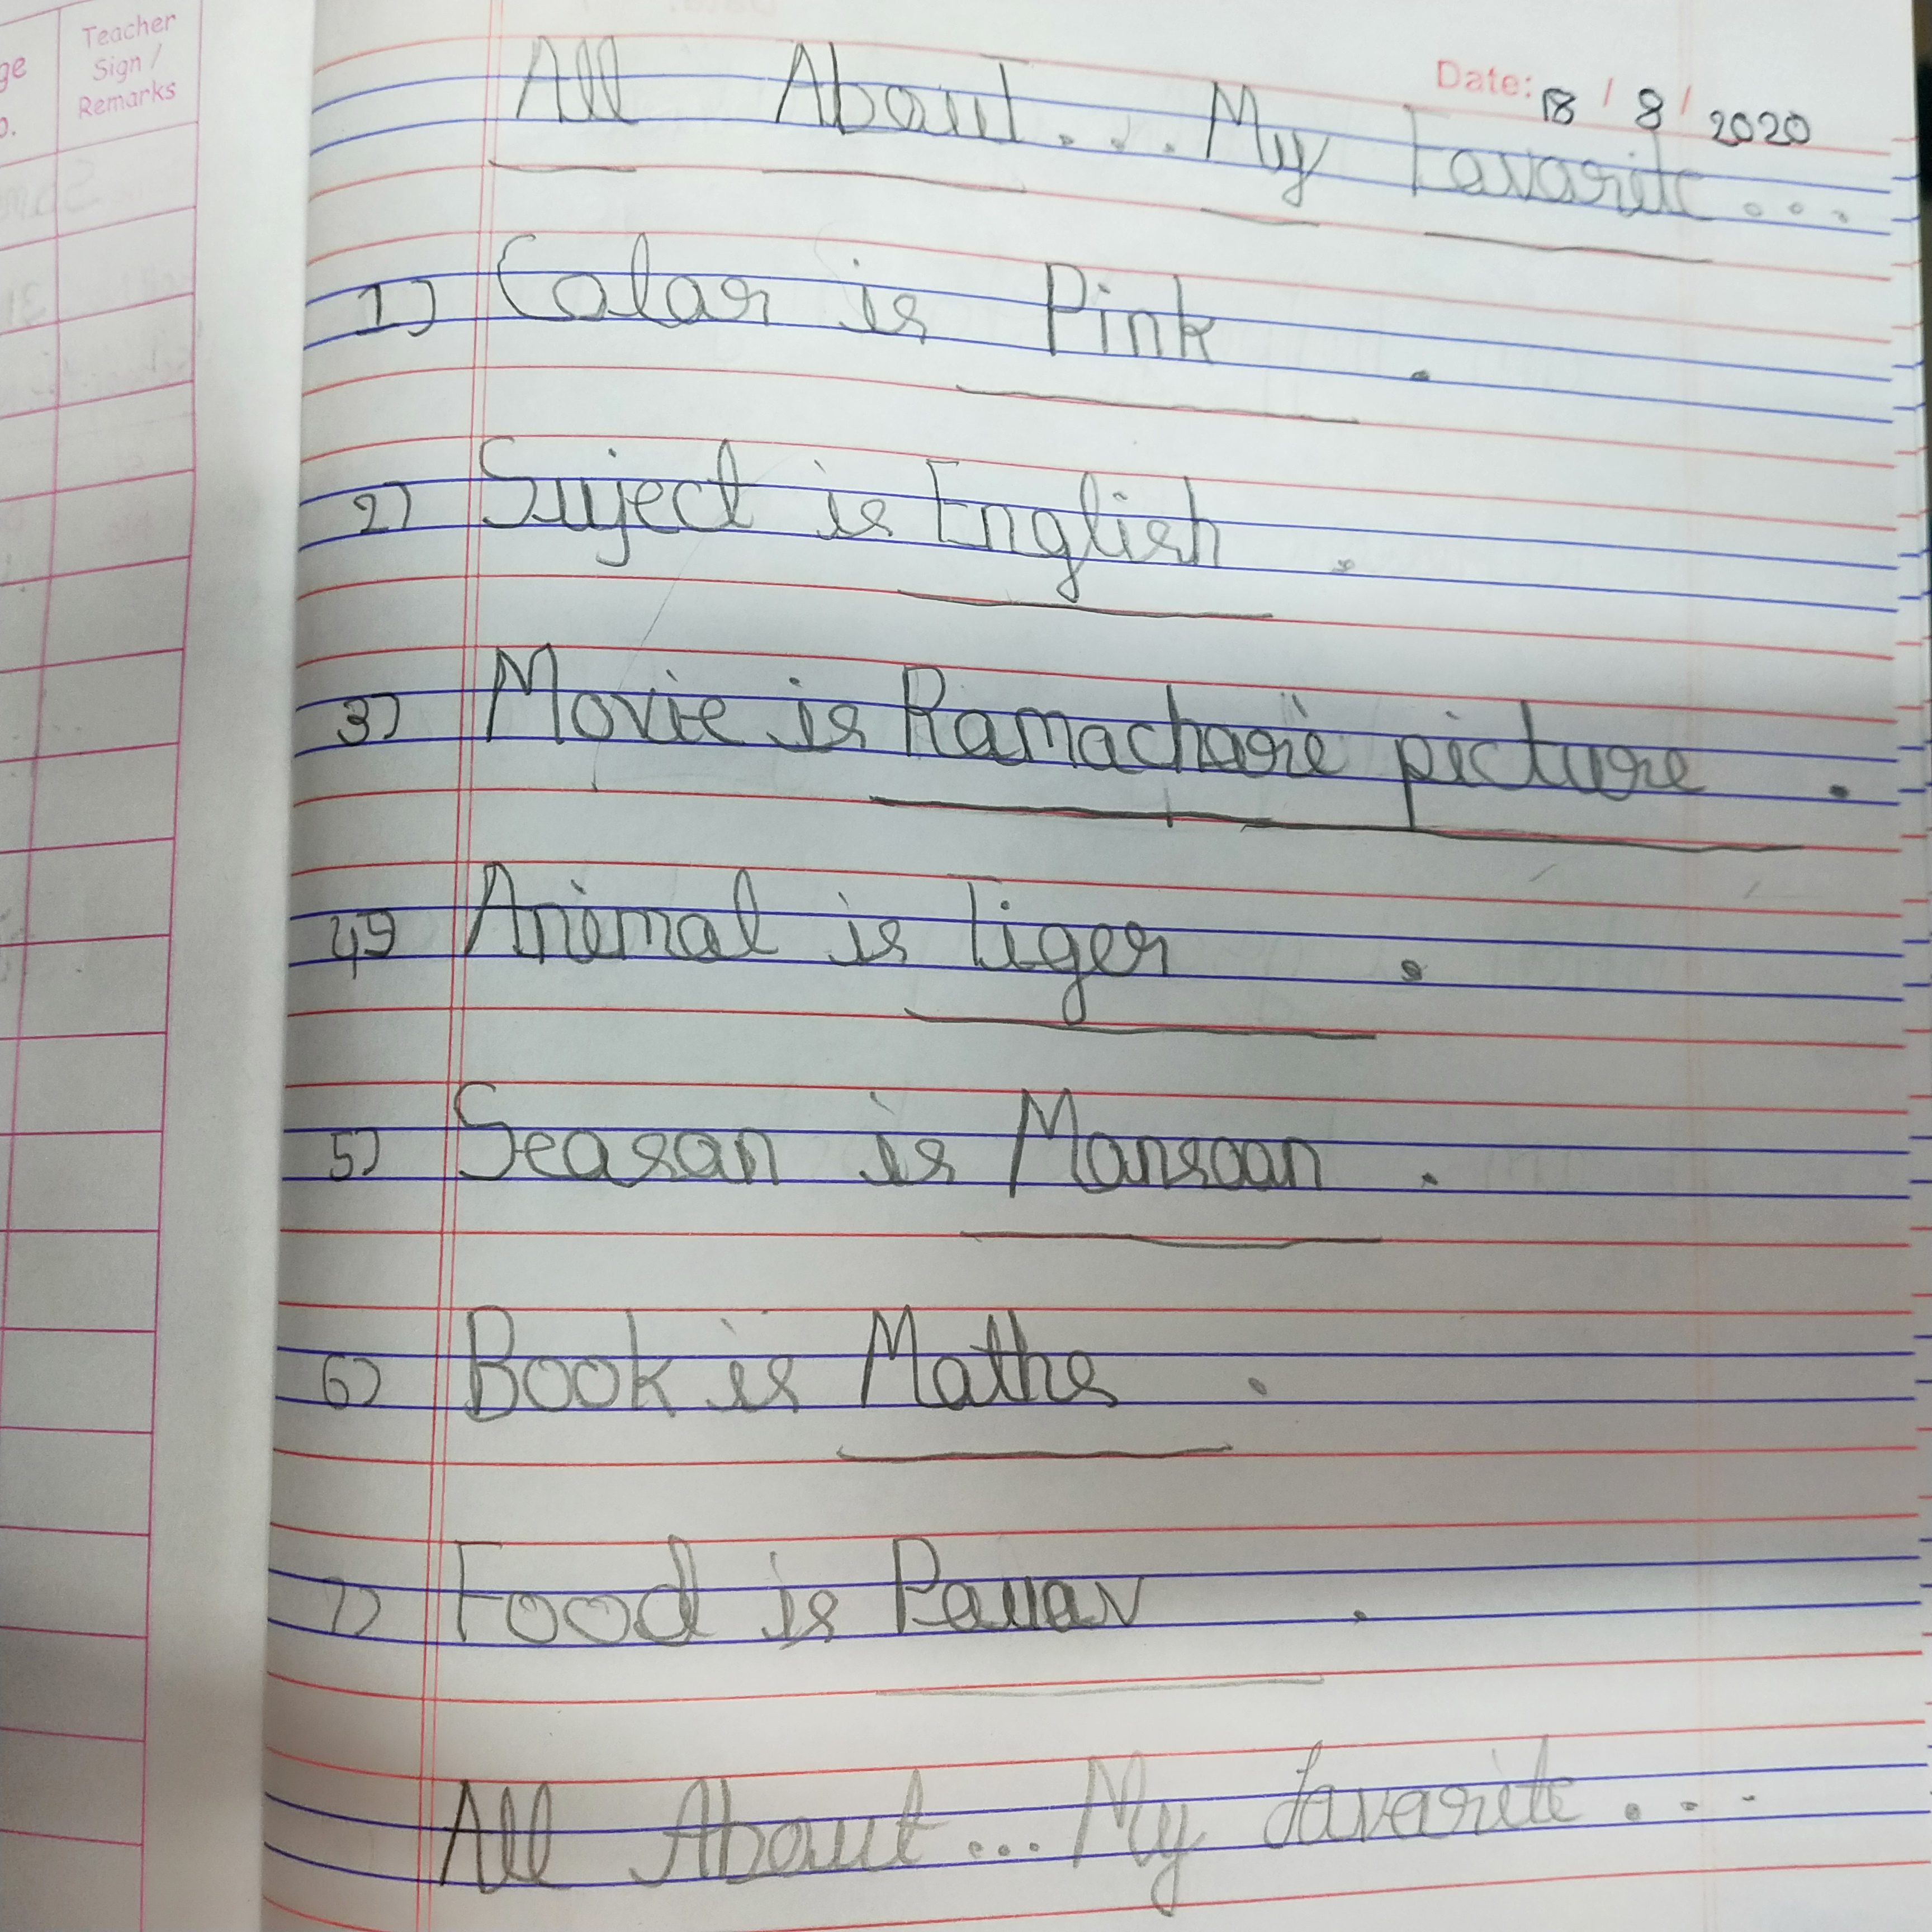 Teacher
Sign /
Remarks
Date: 18 / 8 / 2020
All About... My Favorite...
1) Color is Pink.
2) Suject is English.
3) Movie is Ramacharie picture.
4) Animal is Tiger.
5) Season is Monsoon.
6) Book is Maths.
7) Food is Pauav.
All About... My favorite...